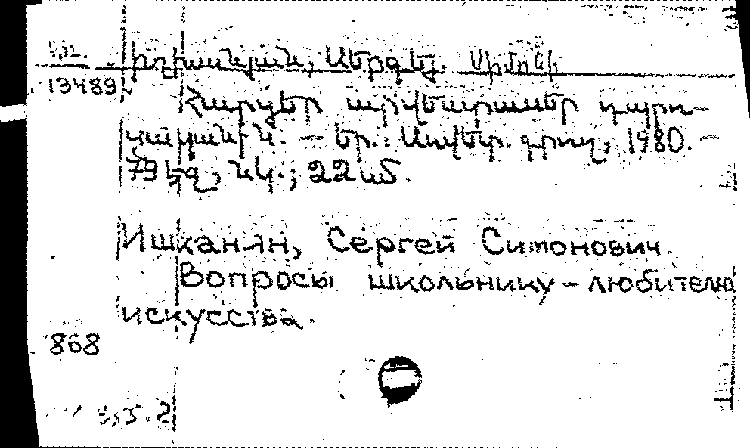 Իշխանյան, Սերգեյ Սիմոնի
13489
Հարցեր արվեստասեր դպրո-
ցականին. — Եր.: Սովետ. գրող, 1980. —
79 էջ, նկ.; 22 սմ.
Ишханян, Сергей Симонович
Вопросы школьнику-любителю
искусства.
868